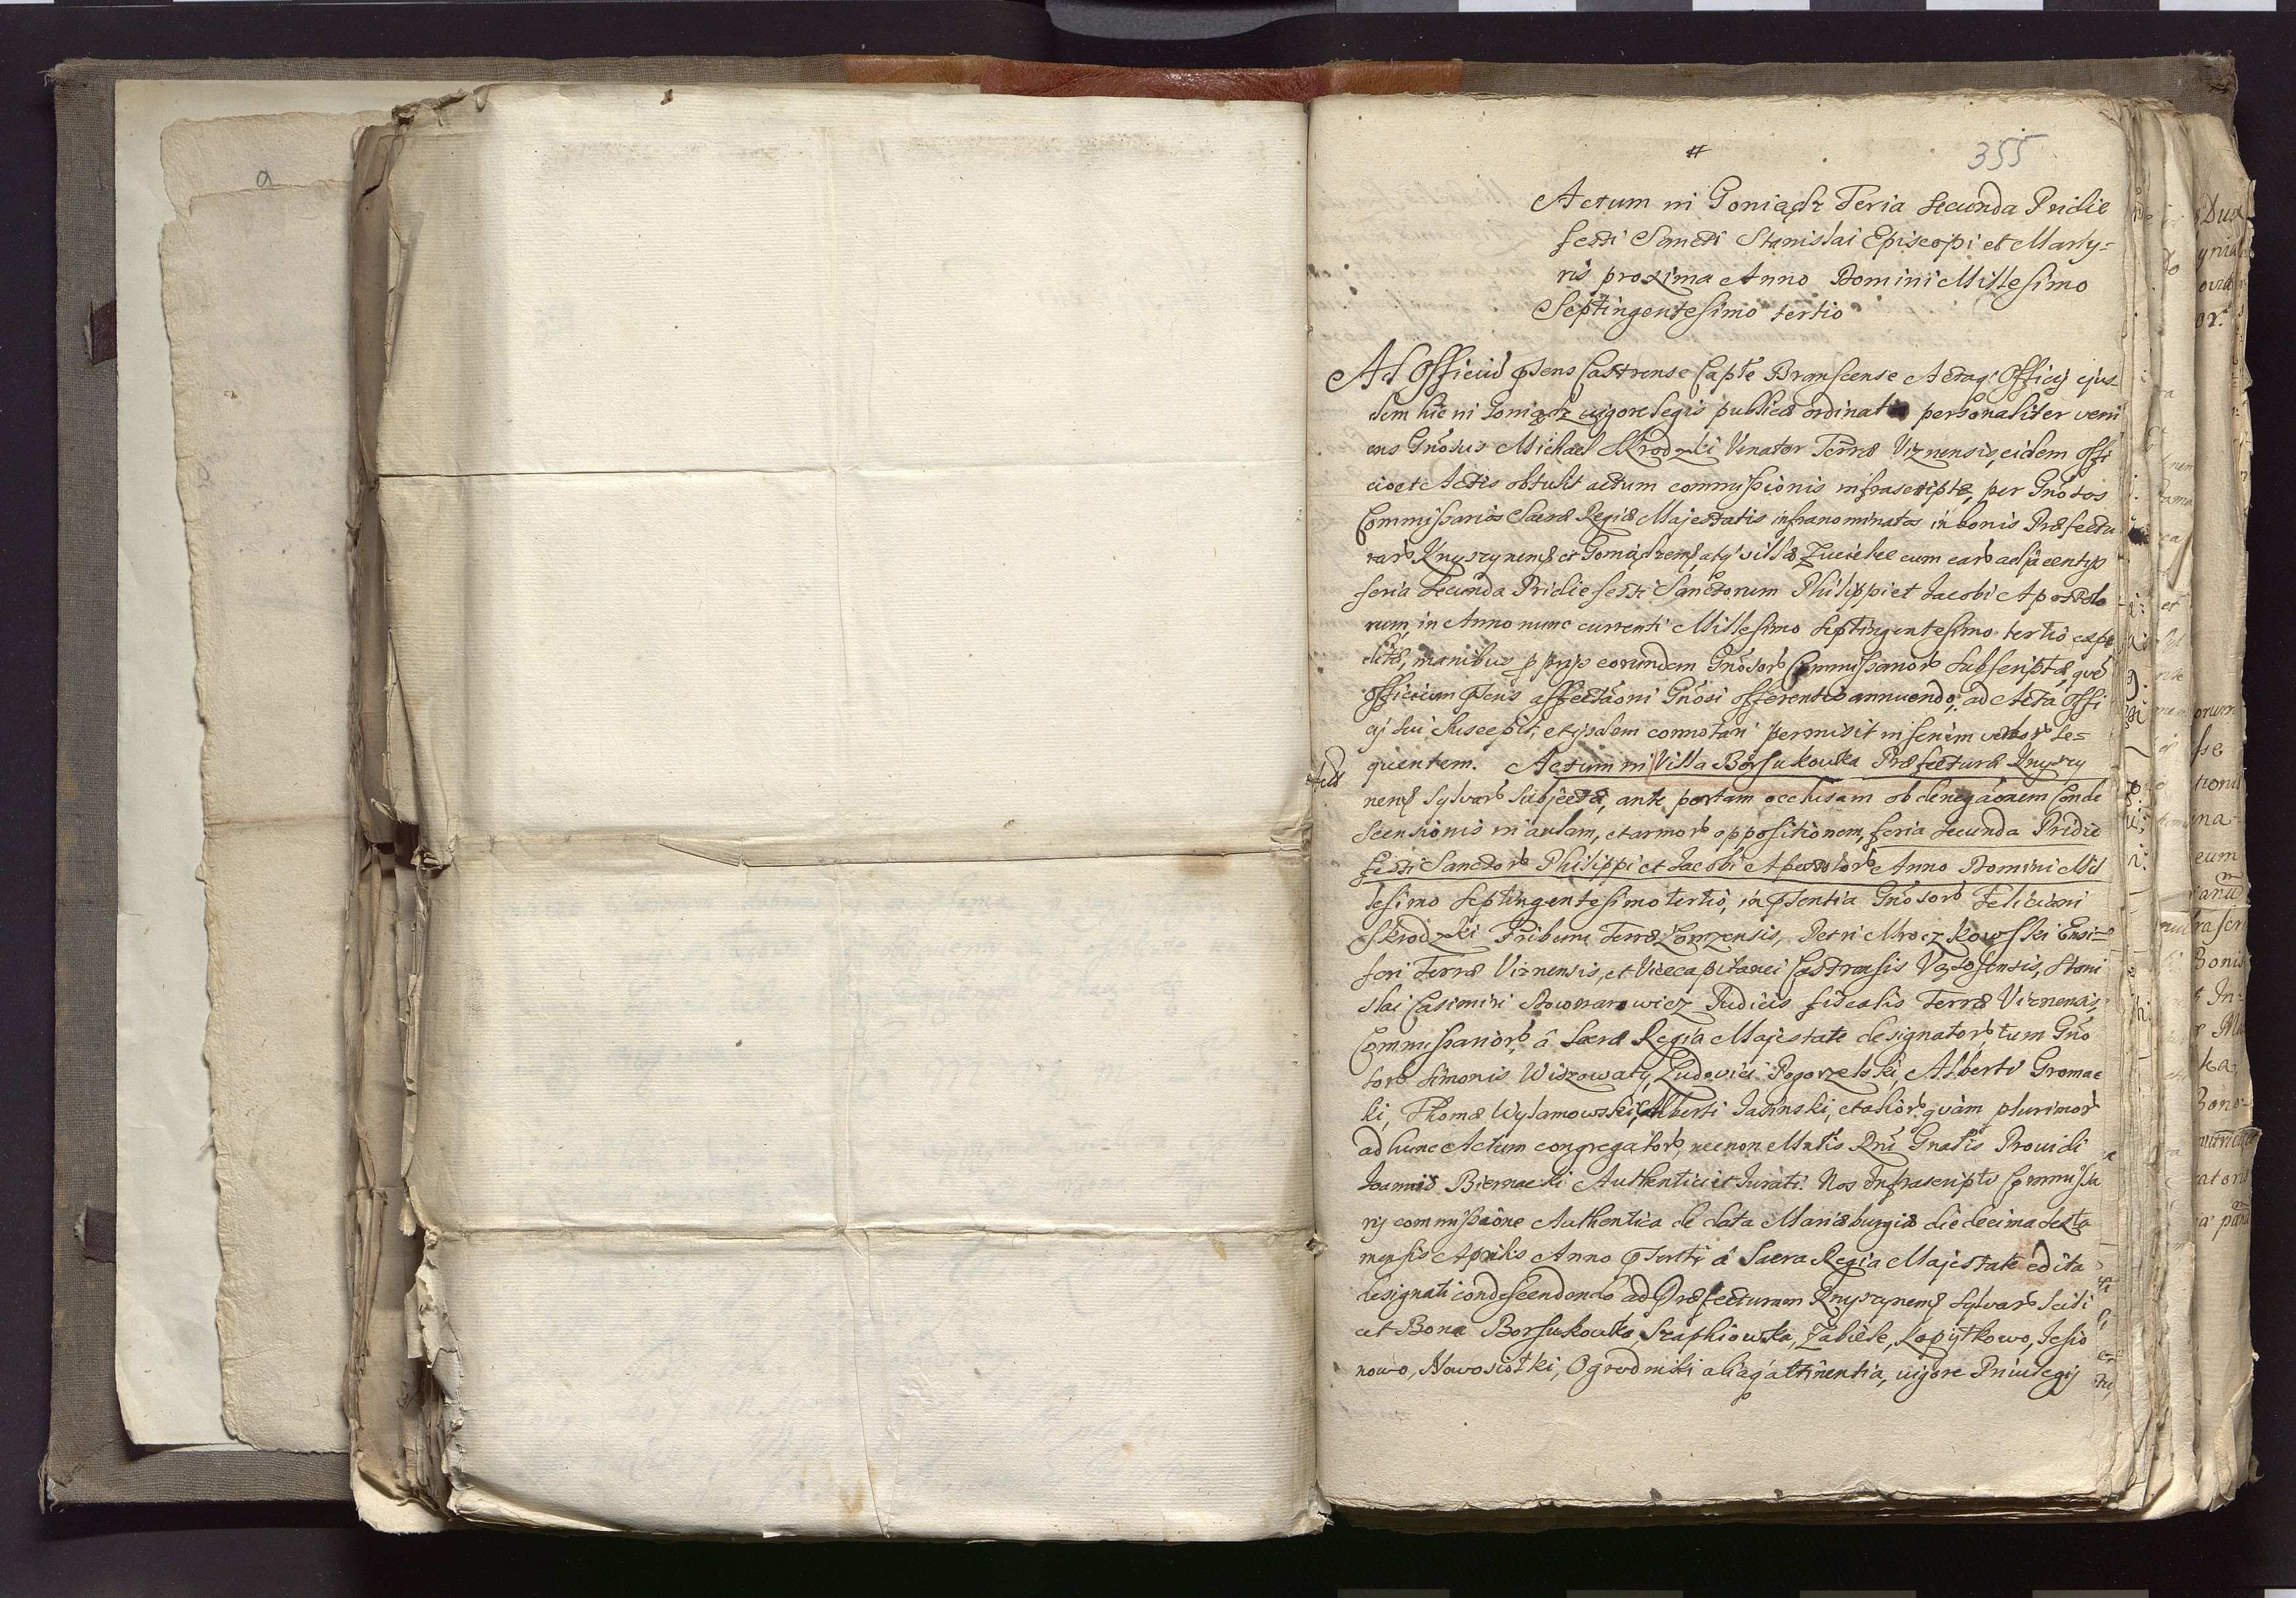 a
#
355
Actum in Goniądz Feria Secunda Pridie
festi Sancti Stanislai Episcopi et Marty=
ris proxima Anno Domini Millesimo
Septingentesimo tertio
Ad Officiũ p̃sens Castrense Capt̃e Branscense Actaq; Officij ejus
dem hic in Goniądz vigore legis publicæ ordinata personaliter veni
ens Gñosus Michael Skrodzki Venator Terræ Viznensis, eidem Offi
cio et Actis obtulit actum commissionis infrascriptæ, per Gñosos
Commissarios Sacræ Regiæ Majestatis infranominatos in bonis Præfectu
rarũ Knyszynens̃ et Goniądzens̃, atq; villæ cum earũ adjacentijs
feria Secunda Pridie festi Sanctorum Philippi et Jacobi Aposto
rum, in Anno nunc currenti Millesimo Septingentesimo tertio expe
ditæ, manibus p̃prijs eorundem Gñosorũ Commissariorũ Subscriptæ, quẽ
Officium p̃sens affectãoni Gñosi offerentis annuendo, ad Acta Offi
cij sui suscepit, et ijsdem connotari permisit in seriem verborũ Se=
quentem. Actum in Villa Borsukowka Præfecturæ Knyszy
nens̃ Sylvarũ Subjecta, ante portam occlusam ob denegãonem Conde
scensionis in aulam, et armorũ oppositionem, feria Secunda Pridie
festi Sanctorũ Philippi et Jacobi Apostolorũ Anno Domini Mil
lesimo Septingentesimo tertio, in p̃sentia Gñosorũ Feliciani
Skrodzki Tribuni Terræ Łomzensis, Petri Mroczkowski Ensi=
feri Terræ Viznensis, et Vicecapitanei Castrensis Vąsosensis, Stani
slai Casimiri Downarowicz Judicis fiscalis Terræ Viznensis,
Commissariorũ â Sacra Regia Majestate designatorũ, tum Gño
sorũ Simonis Wiszowaty, Ludovici Pogorzelski, Alberti Gromac
ki, Thomæ Wylamowski, Alberti Jasinski, et aliorũ quàm plurimorũ
ad hunc Actum congregatorũ, necnon Mñtis Rñi Gñalis Providi
Joannis Biernacki Authentici et Jurati. Nos Infrascripti Commissa
rij commissione Authentica de data Mariæburgiæ die decima Sexta
mensis Aprilis Anno p̃senti â Sacra Regia Majestate edita
designati condescendendo ad Præfecturam Knyszynens̃ Sylvarũ Scili
cet Bona Borsukowka Szaphiowka, Zabiele, Kopytkowo, Jesio
nowo, Nowosiołki, Ogrodniki aliaq; attinentia, vigore Privilegij